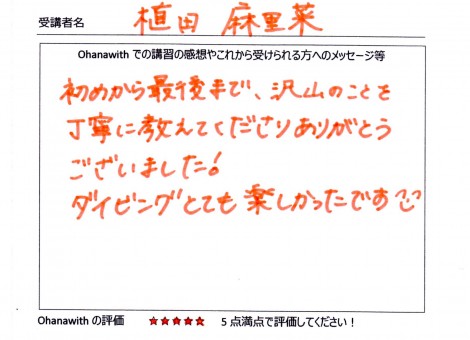 受講者名 植田 麻里菜
Ohanawith での講習の感想やこれから受けられる方へのメッセージ等
初めから最後まで、沢山のことを
丁寧に教えてくださりありがとう
ございました!
ダイビングとても楽しかったです
Ohanawith の評価 ★★★★★ 5 点満点で評価してください！